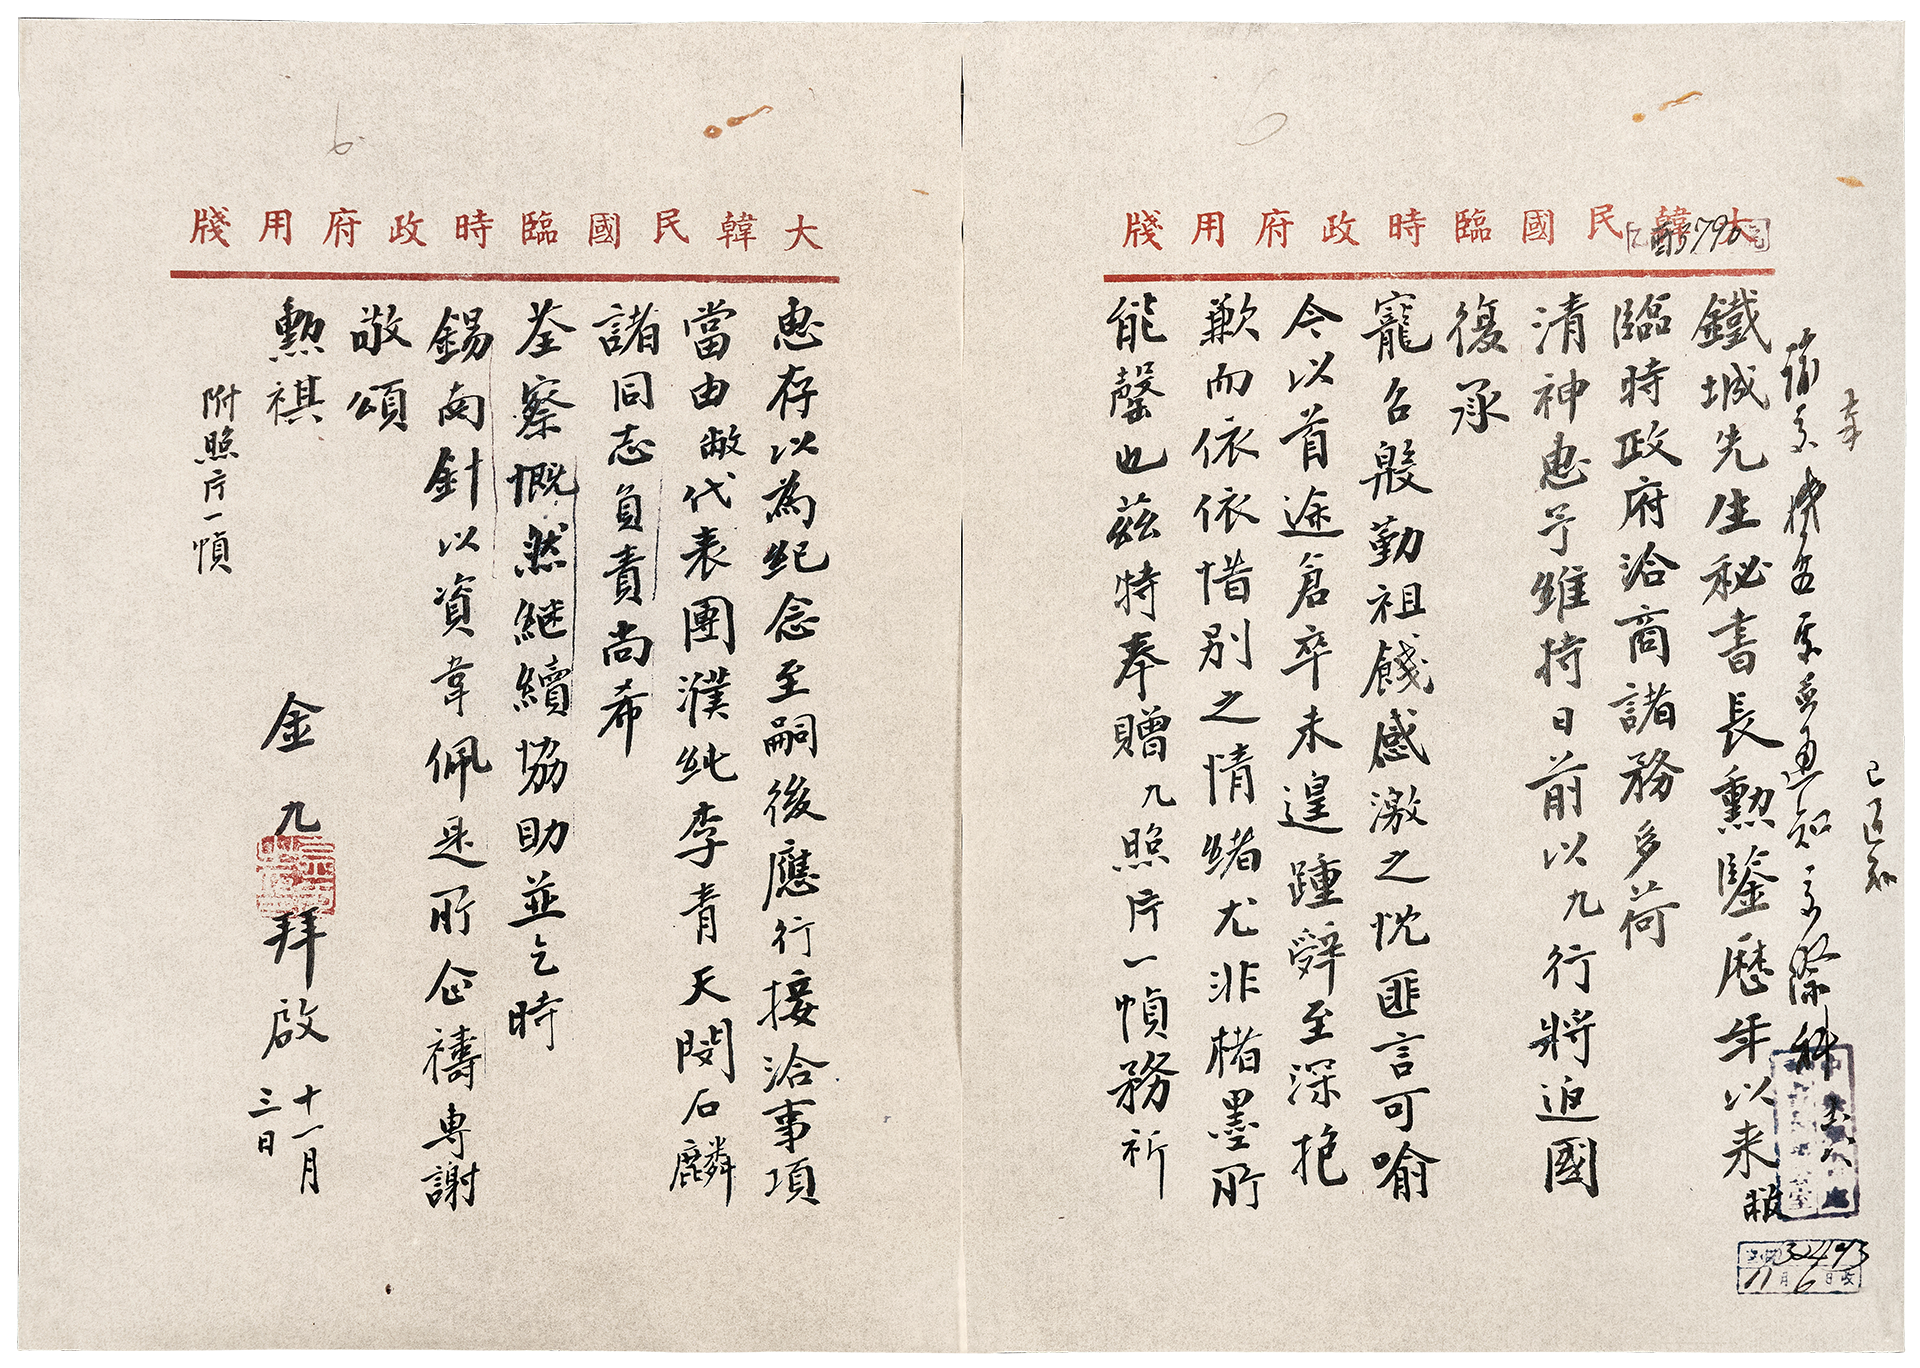 大韓民國臨時政府用牋
鐵城先生秘書長勳鑒歷年以來敝
臨時政府洽商諸務多荷
清神惠予維持日前以九行將返國
復承
寵召殷勤祖餞感激之忱匪言可喻
今以首途倉卒未遑踵辭至深抱
歉而依依惜別之情緒尤非楮墨所
能罄也茲特奉贈九照片一幀務祈
大韓民國臨時政府用牋
惠存以為紀念至嗣後應行接洽事項
當由敝代表團濮純李青天閔石麟
諸同志負責尚希
荃察慨然繼續協助並乞時
錫南針以資韋佩是所企禱專謝
敬頌
勳祺
金九拜啟
十一月
三日
附照片一幀
已通知
3493
11月6日收